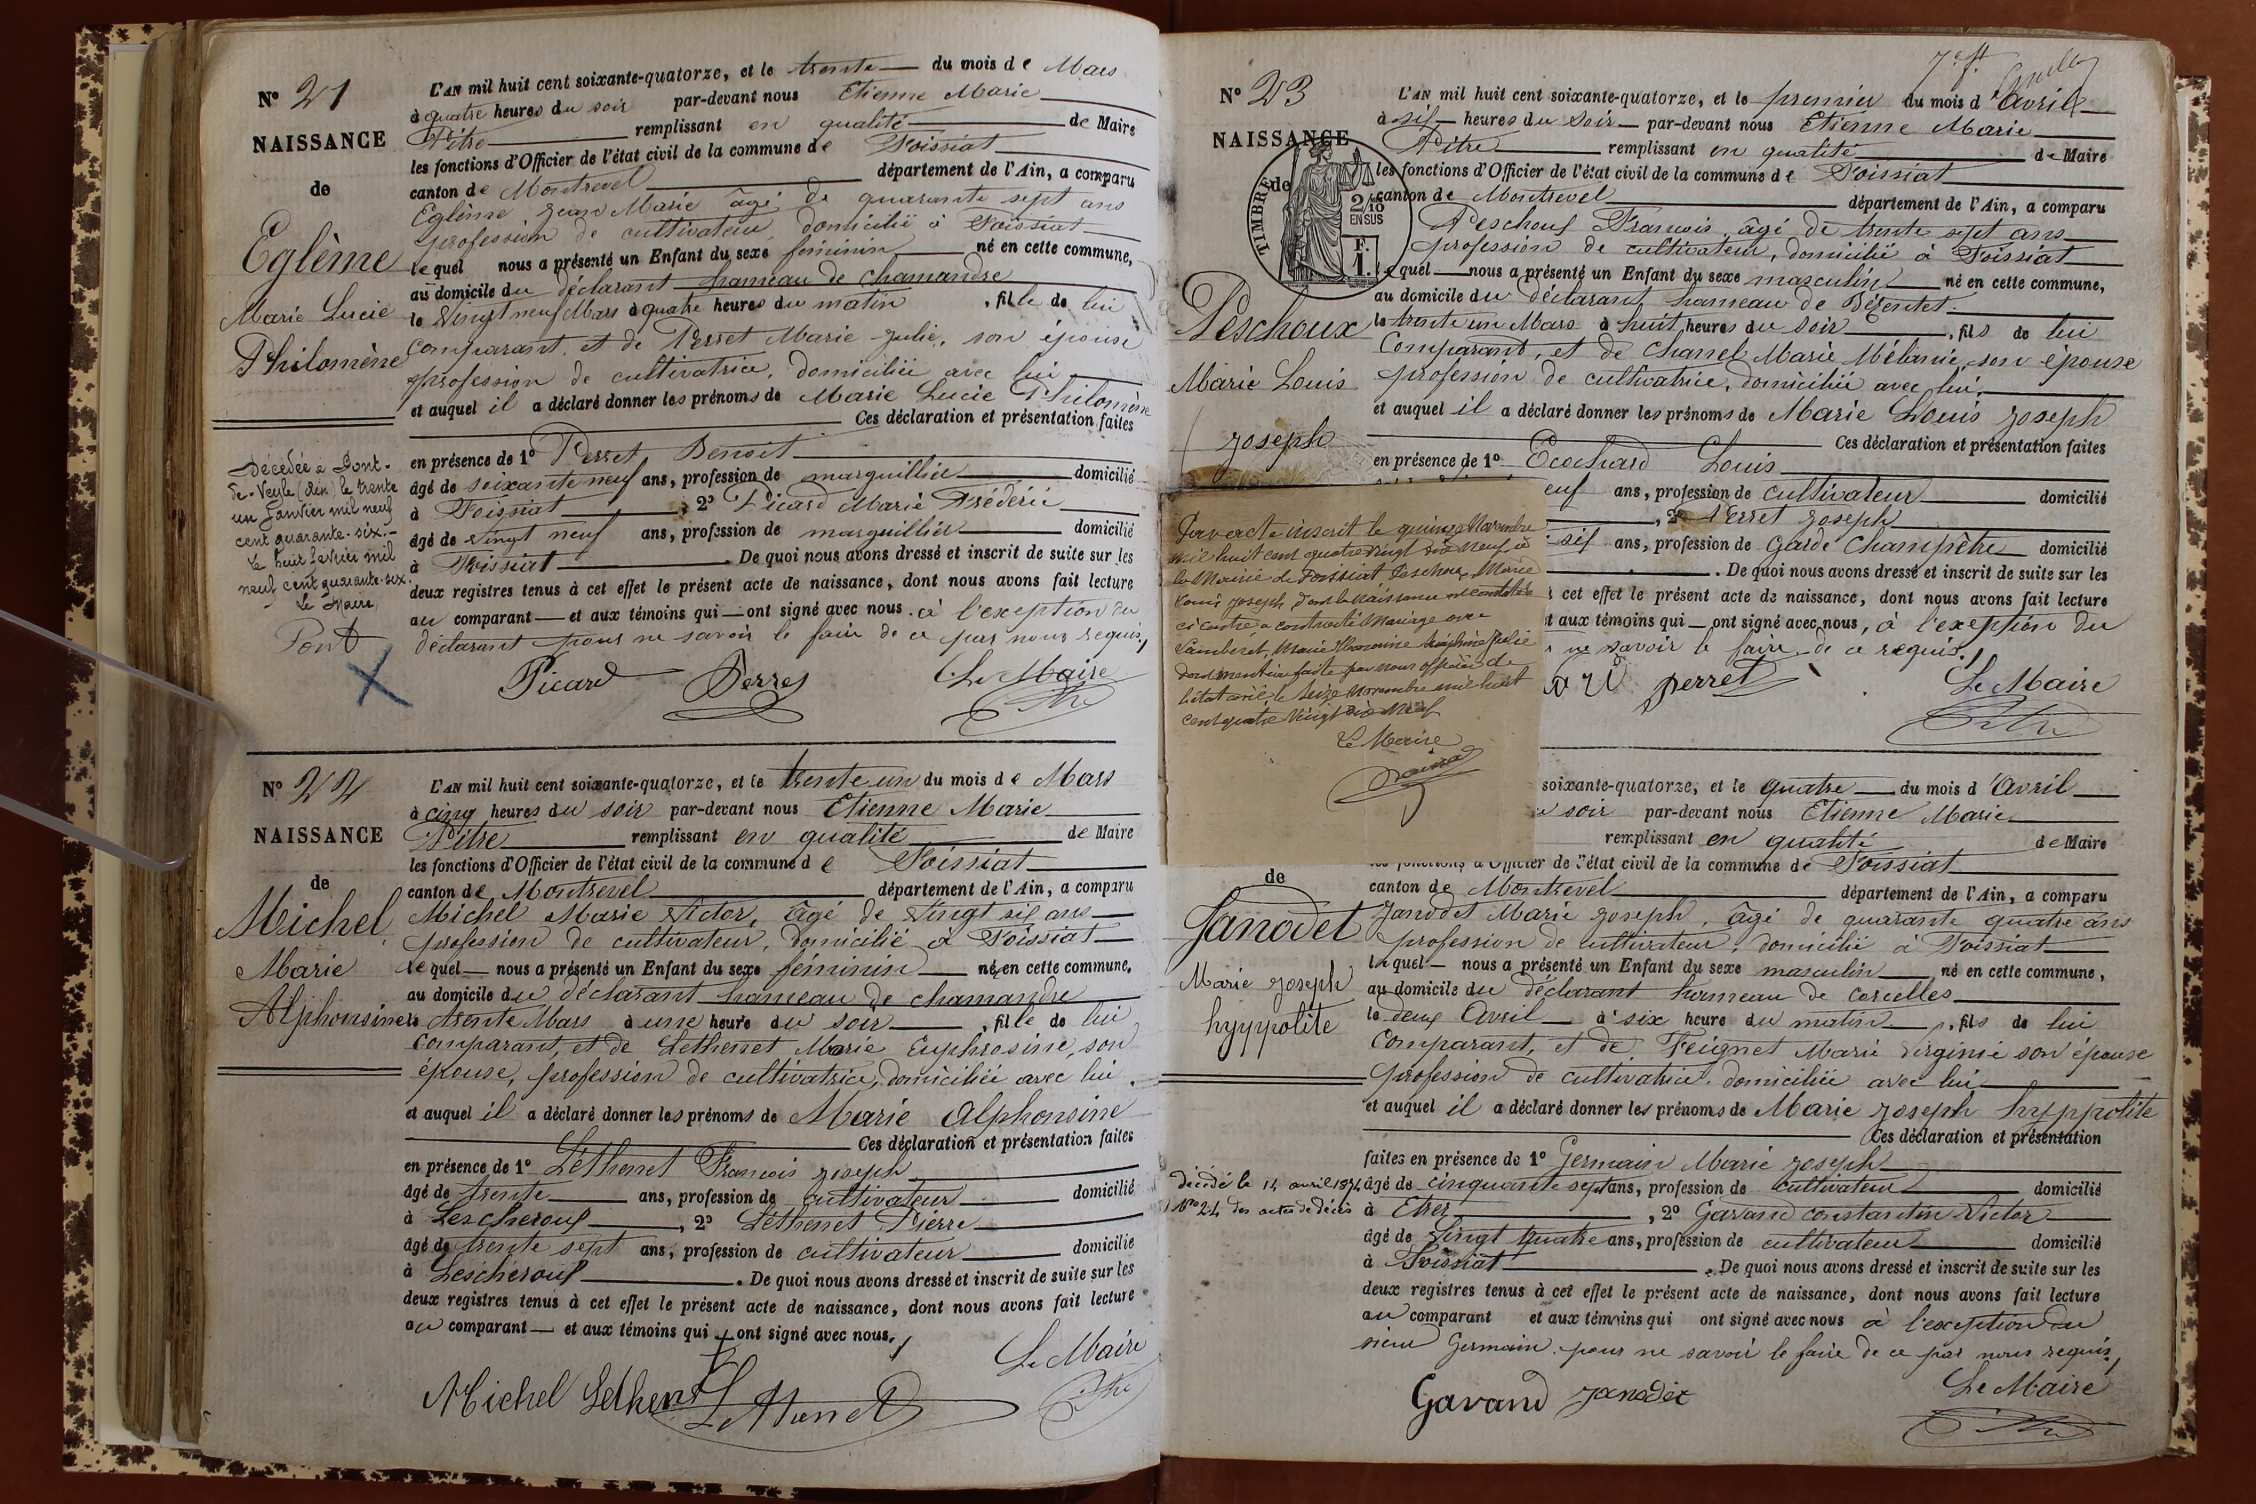 N° 21
NAISSANCE
de
Eglème
Marie Lucie
Philomène
Décédée à Pont-
de-Veyle (Ain) le trente
un Janvier mil neuf
cent quarante-six.-
Le huit février mil
neuf cent quarante-six.
Le Maire,
Pont
L'AN mil huit cent soixante-quatorze, et le trente du mois de Mars
à quatre heures du soir par-devant nous Etienne Marie
Pitre remplissant en qualité de Maire
les fonctions d'Officier de l'état civil de la commune de Foissiat
canton de Montrevel département de l'Ain, a comparu
Eglème Jean Marie âgé de quarante sept ans
profession de cultivateur domicilié à Foissiat
lequel nous a présenté un Enfant du sexe féminin né en cette commune,
au domicile du déclarant hameau de chamandre
le vingt neuf Mars à quatre heures du matin, fille de lui
comparant, et de Perret Marie Julie, son épouse
profession de cultivatrice, domiciliée avec lui
et auquel il a déclaré donner les prénoms de Marie Lucie Philomène
Ces déclaration et présentation faites
en présence de 1° Perret Benoit
âgé de soixante neuf ans, profession de marguillier domicilié
à Foissiat, 2° Picard Marie Frédéric
âgé de vingt neuf ans, profession de marguillier domicilié
à Foissiat. De quoi nous avons dressé et inscrit de suite sur les
deux registres tenus à cet effet le présent acte de naissance, dont nous avons fait lecture
au comparant et aux témoins qui ont signé avec nous. à l'exception du
déclarant pour ne savoir le faire de ce par nous requis,
Picard Perret Le Maire
Pitre
N° 22
NAISSANCE
de
Michel
Marie
Alphonsine
L'AN mil huit cent soixante-quatorze, et le trente un du mois de Mars
à cinq heures du soir par-devant nous Etienne Marie
Pitre remplissant en qualité de Maire
les fonctions d'Officier de l'état civil de la commune de Foissiat
canton de Montrevel département de l'Ain, a comparu
Michel Marie Victor, âgé de vingt six ans
profession de cultivateur, domicilié à Foissiat
lequel nous a présenté un Enfant du sexe féminin né en cette commune,
au domicile du déclarant hameau de chamandre
le trente Mars à une heure du soir, fille de lui
comparant, et de Lethenet Marie Euphrosine, son
épouse, profession de cultivatrice, domiciliée avec lui.
et auquel il a déclaré donner les prénoms de Marie Alphonsine
Ces déclaration et présentation faites
en présence de 1° Léthenet François Joseph
âgé de trente ans, profession de cultivateur domicilié
à Lescheroux, 2° Léthenet Pierre
âgé de trente sept ans, profession de cultivateur domicilié
à Lescheroux. De quoi nous avons dressé et inscrit de suite sur les
deux registres tenus à cet effet le présent acte de naissance, dont nous avons fait lecture
au comparant et aux témoins qui ont signé avec nous,
Le Maire
Michel Lethenet Lethenet Pitre
N° 23
NAISSANCE
de
TIMBRE
2/10
EN SUS
F.
1.
Peschoux
Marie Louis
Joseph
L'AN mil huit cent soixante-quatorze, et le premier du mois d'Avril
à six heures du soir par-devant nous Etienne Marie
Pitre remplissant en qualité de Maire
les fonctions d'Officier de l'état civil de la commune de Foissiat
canton de Montrevel département de l'Ain, a comparu
Peschoux François, âgé de trente sept ans
profession de cultivateur, domicilié à Foissiat
lequel nous a présenté un Enfant du sexe masculin né en cette commune,
au domicile du déclarant hameau de Bézentet.
le trente un Mars à huit heures du soir, fils de lui
Comparant, et de Charnel Marie Mélanie, son épouse
profession de cultivatrice, domiciliée avec lui,
et auquel il a déclaré donner les prénoms de Marie Louis Joseph
Ces déclaration et présentation faites
en présence de 1° Ecochard Louis
euf ans, profession de cultivateur domicilié
, 2° Perret Joseph
six ans, profession de Garde Champêtre domicilié
. De quoi nous avons dressé et inscrit de suite sur les
cet effet le présent acte de naissance, dont nous avons fait lecture
et aux témoins qui ont signé avec nous, à l'exception du
ne savoir le faire de ce requis,
perret Le Maire
Pitre
Par acte inscrit le quinze Novembre
mil huit cent quatre vingt dix neuf à
la Mairie de Foissiat Peschoux Marie
Louis Joseph dont la naissance est constatée
ci contre a contracté Mariage avec
Marie Julie
dont mention faite par nous officier de
l'état civil le seize novembre mil huit
cent quatre vingt dix neuf
Le Maire
soixante-quatorze, et le quatre du mois d'Avril
soir par-devant nous Etienne Marie
remplissant en qualité de Maire
les fonctions d'Officier de l'état civil de la commune de Foissiat
canton de Montrevel département de l'Ain, a comparu
de
Janodet
Marie Joseph
hyppolite
décédé le 14 avril 1874
N° 24 des actes de décès
Janodet Marie Joseph, âgé de quarante quatre ans
profession de cultivateur, domicilié à Foissiat
lequel nous a présenté un Enfant du sexe masculin né en cette commune,
au domicile du déclarant hameau de corcelles
le deux Avril à six heure du matin, fils de lui
Comparant, et de Feignet Marie Virginie son épouse
profession de cultivatrice, domiciliée avec lui
et auquel il a déclaré donner les prénoms de Marie Joseph hyppolite
Ces déclaration et présentation
faites en présence de 1° Germain Marie Joseph
âgé de cinquante sept ans, profession de cultivateur domicilié
à Etrez, 2° Gavand constantin Victor
âgé de vingt quatre ans, profession de cultivateur domicilié
à Foissiat. De quoi nous avons dressé et inscrit de suite sur les
deux registres tenus à cet effet le présent acte de naissance, dont nous avons fait lecture
au comparant et aux témoins qui ont signé avec nous à l'exception du
sieur Germain pour ne savoir le faire de ce par nous requis,
Gavand Janodet Le Maire
Pitre